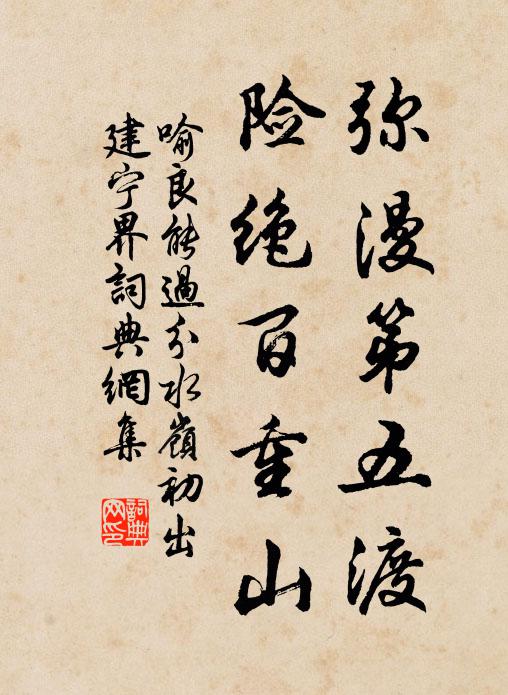 弥漫第五渡
险绝百重山
喻良能過分水嶺初出
建宁界詞典網集
詞典网印